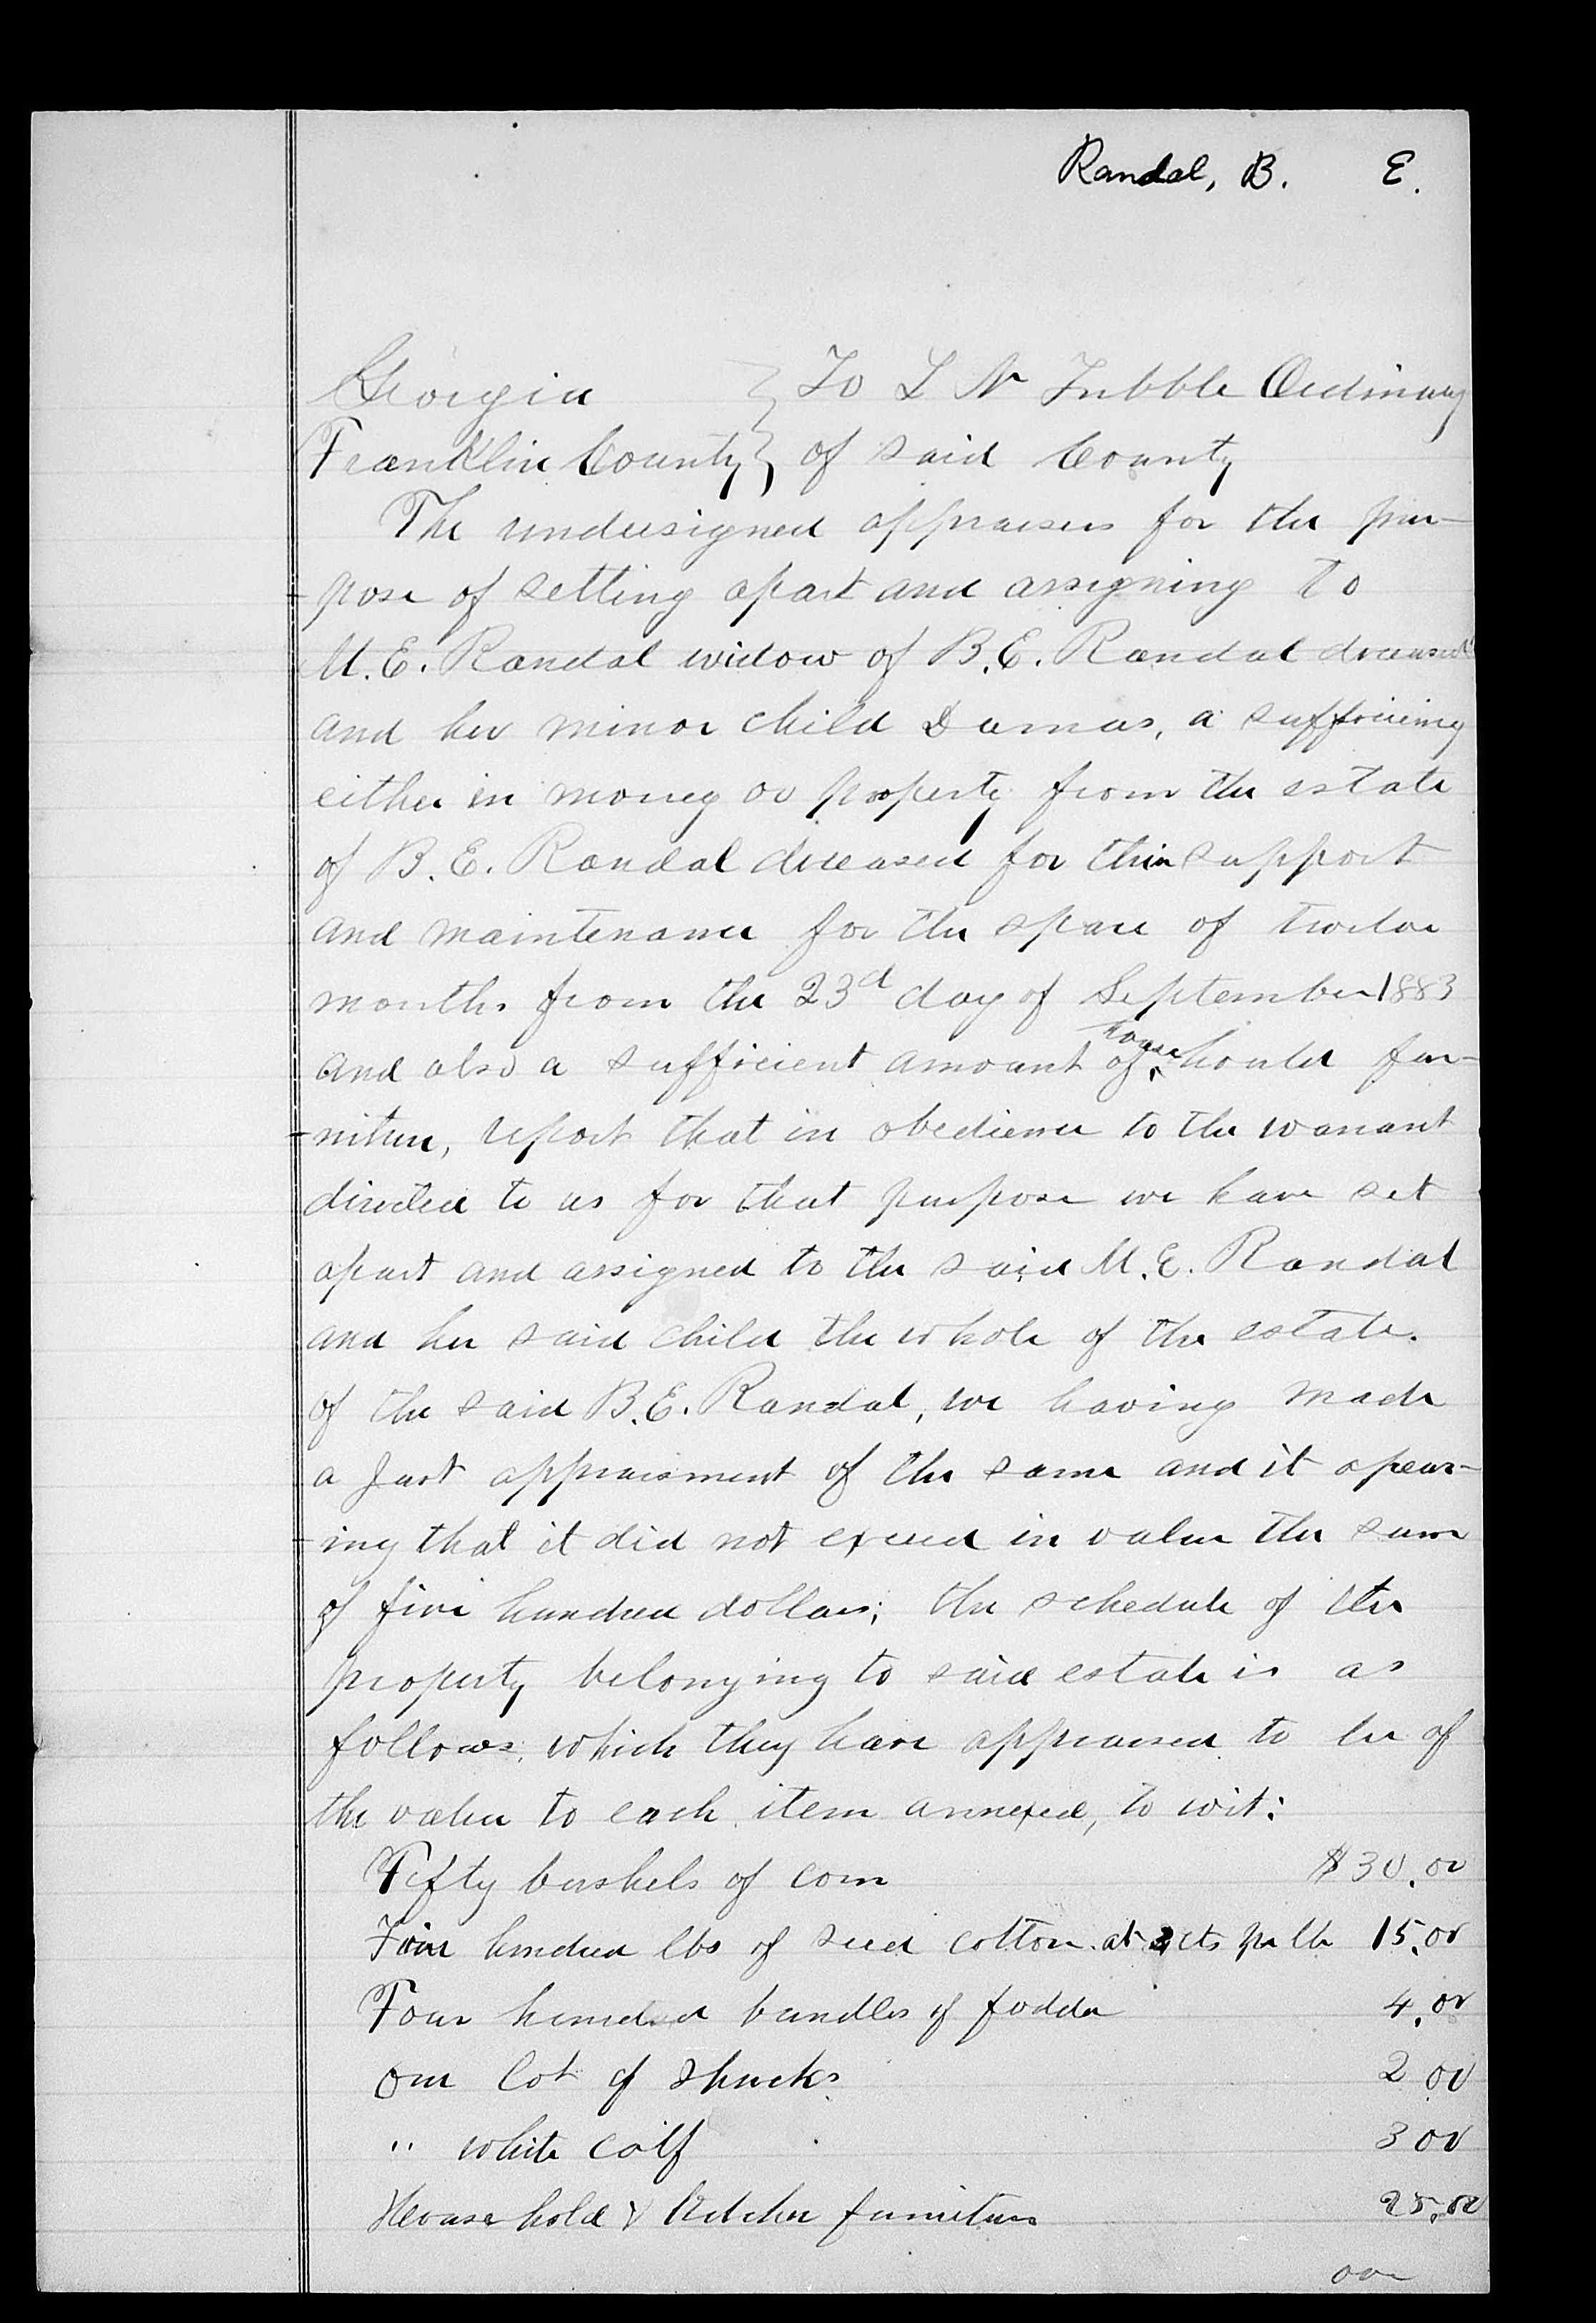 Randal, B. E.
Georgia } To L N Tribble Ordinary
Franklin County } of said County
The undersigned appraisers for the pur-
pose of setting apart and assigning to
M. E. Randal widow of B. E. Randal deceased
and her minor child Damas, a sufficiency
either in money or property from the estate
of B. E. Randal deceased for their support
and maintenance for the space of twelve
months from the 23d day of September 1883
and also a sufficient amount of house hould fur-
niture, report that in obedience to the warrant
directed to us for that purpose we have set
apart and assigned to the said M. E. Randal
and her said child the whole of the estate.
of the said B. E. Randal, we having made
a Just appraisment of the same and it apear-
ing that it did not exceed in value the sum
of five hundred dollars; the schedule of the
property belonging to said estate is as
follows, which they have appraised to be of
the value to each item annexed, to wit:
Fifty bushels of corn $30.00
hundred lbs of seed cotton at cts per lb 15.00
Four hundred bundles of fodder 4.00
One lot of Shucks 2 00
" white calf 3 00
House hold & Kitchen furniture 25.00